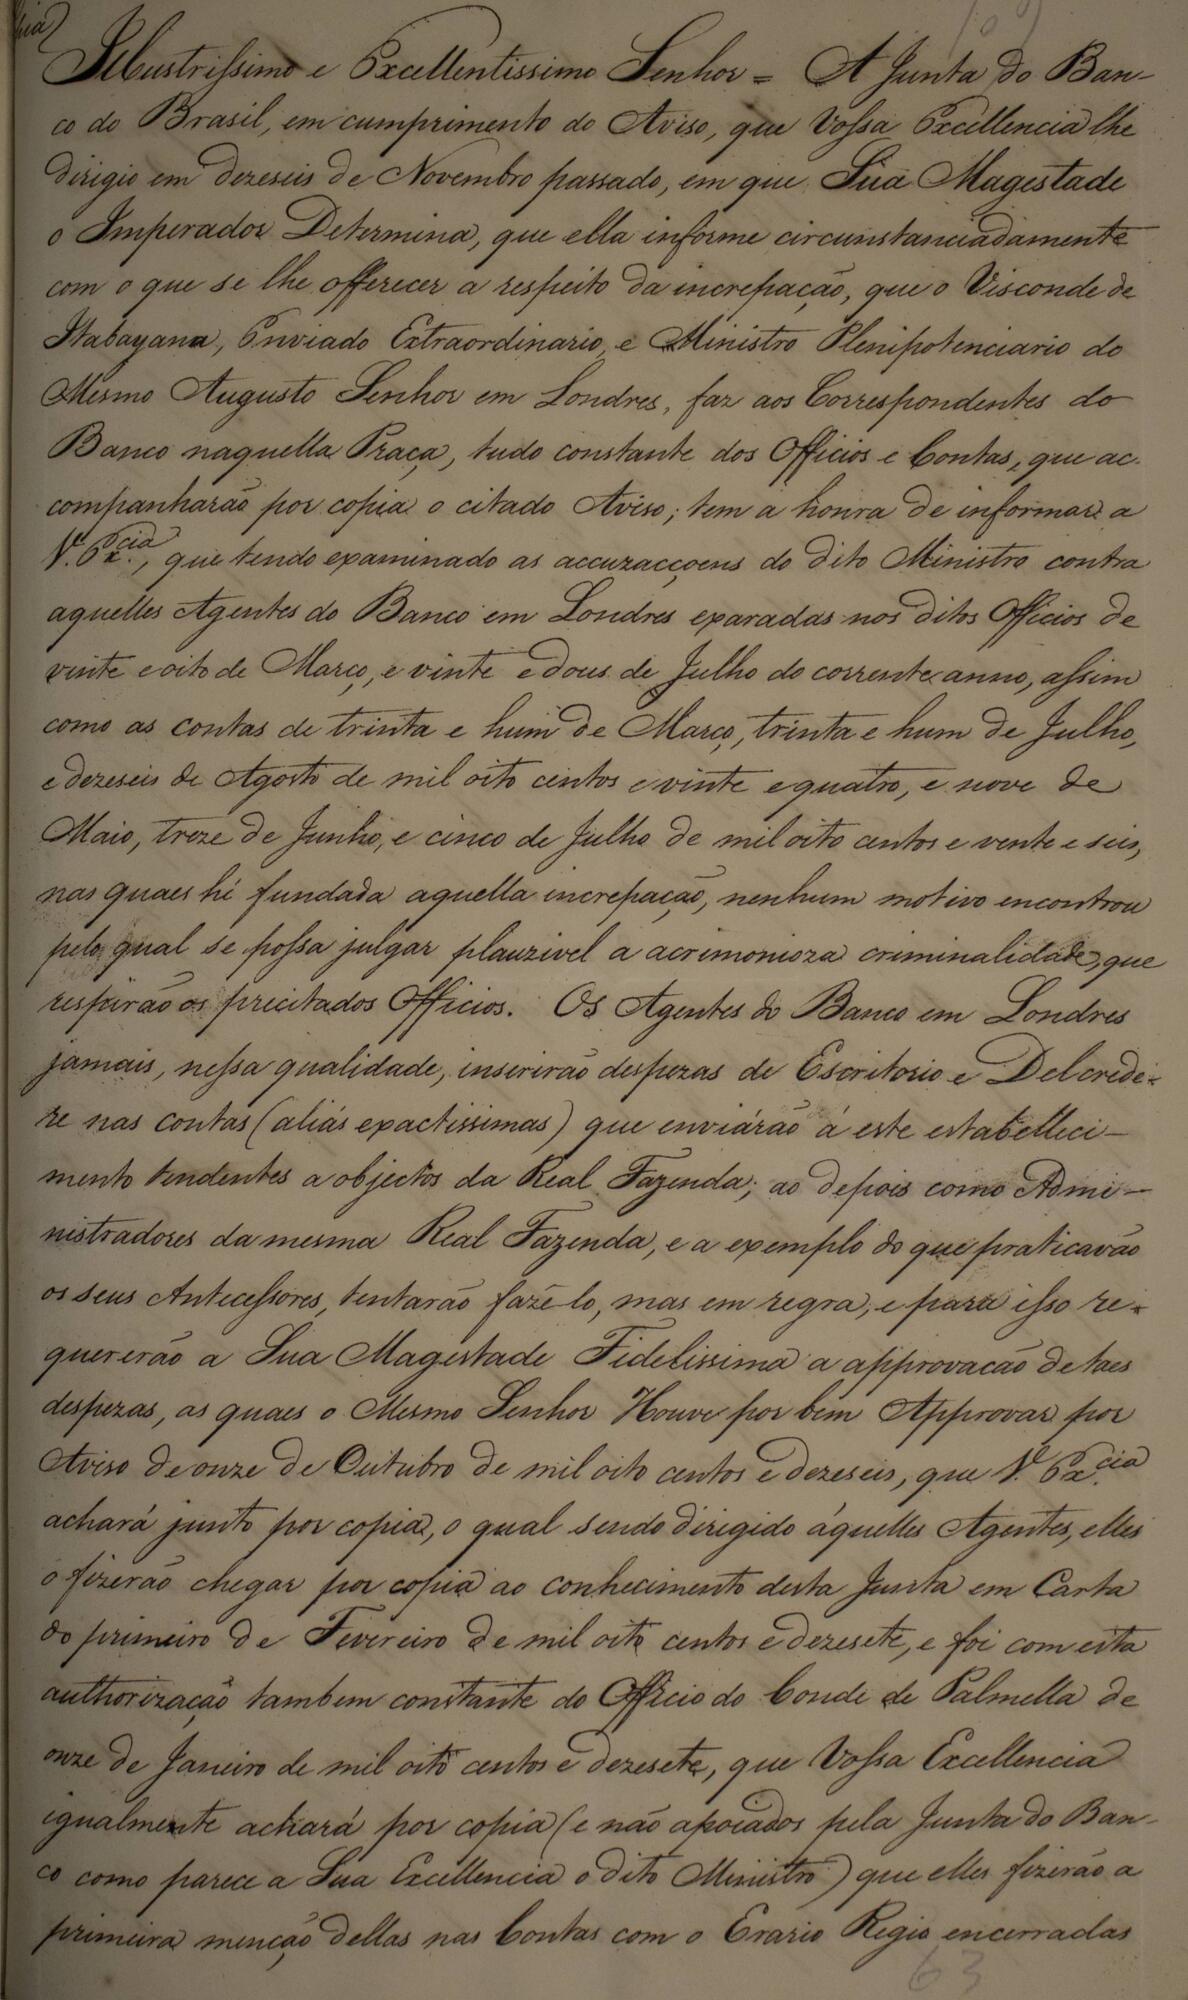 Illustrissimo e Excellentissimo Senhor = A Junta do Ban-
co do Brasil, em cumprimento do Aviso, que Vossa Excellencia lhe
dirigio em dezeseis de Novembro passado, em que Sua Magestade
o Imperador Determina, que ella informe circunstanciadamente
com o que se lhe offerecer a respeito da increpação, que o Visconde de
Itabayana, Enviado Extraordinario, e Ministro Plenipotenciario do
Mesmo Augusto Senhor em Londres, faz aos Correspondentes do
Banco naquella Praça, tudo constante dos Officios e Contas, que ac-
companharão por copia o citado Aviso; tem a honra de informar a
V. Ex.cia, que tendo examinado as accuzacçoens do dito Ministro contra
aquelles Agentes do Banco em Londres exaradas nos ditos Officios de
vinte e oito de Março, e vinte e dous de Julho do corrente anno, assim
como as contas de trinta e hum de Março, trinta e hum de Julho,
e dezeseis de Agosto de mil oito centos e vinte e quatro, e nove de
Maio, treze de Junho, e cinco de Julho de mil oito centos e vente e seis,
nas quaes hé fundada aquella increpação, nenhum motivo encontrou
pelo qual se possa julgar plauzivel a acrimonioza criminalidade, que
respirão os precitados Officios. Os Agentes do Banco em Londres
jamais, nessa qualidade, inserirão despezas de Escritorio e Delcrede-
re nas contas (aliás exactissimas) que enviárão á este estabelleci-
mento tendentes a objectos da Real Fazenda; ao depois como Admi-
nistradores da mesma Real Fazenda, e a exemplo do que praticavão
os seus Antecessores, tentarão fazê-lo, mas em regra, e para isso re-
quererão a Sua Magestade Fidelissima a approvação de taes
despezas, as quaes o Mesmo Senhor Houve por bem Approvar por
Aviso de onze de Outubro de mil oito centos e dezeseis, que V. Ex.cia
achará junto por copia, o qual sendo dirigido áquelles Agentes, elles
o fizerão chegar por copia ao conhecimento desta Junta em Carta
do primeiro de Fevereiro de mil oito centos e dezesete, e foi com esta
authorização tambem constante do Officio do Conde de Palmella de
onze de Janeiro de mil oito centos e dezesete, que Vossa Excellencia
igualmente achará por copia (e não apoiados pela Junta do Ban-
co como parece a Sua Excellencia o dito Ministro) que elles fizerão a
primeira menção dellas nas Contas com o Erario Regio encerradas
63